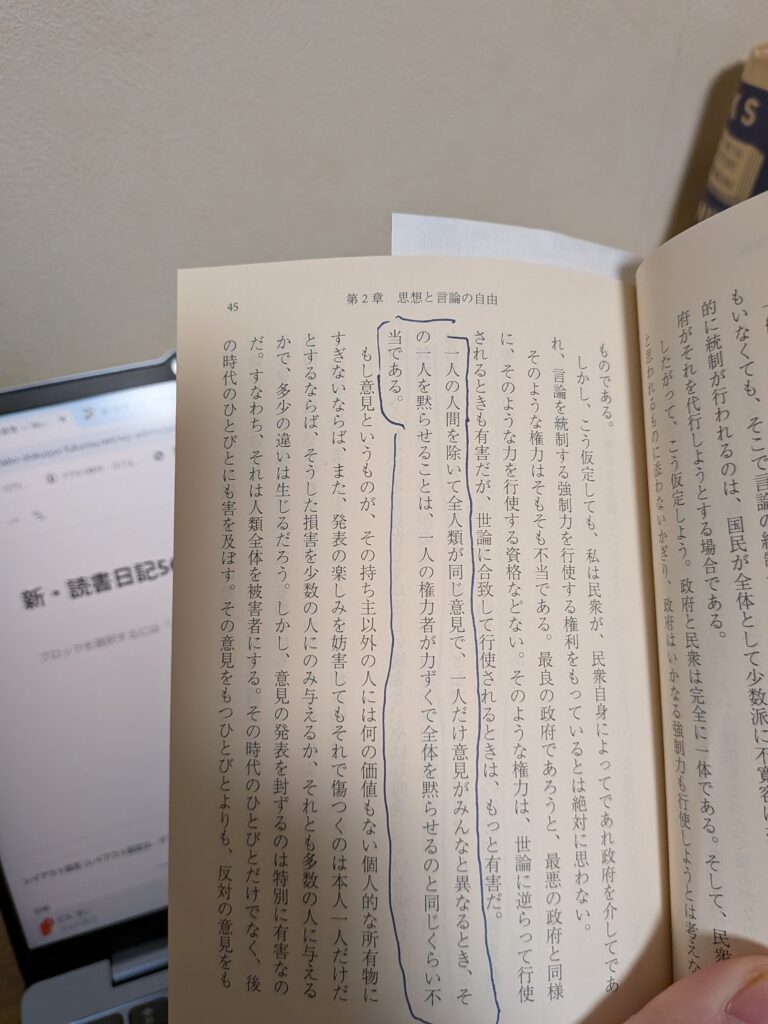 もいなくても、そこで言論の統制
的に統制が行われるのは、国民が全体として少数派に不寛容に
府がそれを代行しようとする場合である。
したがって、こう仮定しよう。政府と民衆は完全に一体である。そして、民衆
と思われるものに添わないかぎり、政府はいかなる強制力も行使しようとは考えな
45
第2章 思想と言論の自由
ものである。
しかし、こう仮定しても、私は民衆が、民衆自身によってであれ政府を介してであ
れ、言論を統制する強制力を行使する権利をもっているとは絶対に思わない。
そのような権力はそもそも不当である。最良の政府であろうと、最悪の政府と同様
に、そのような力を行使する資格などない。そのような権力は、世論に逆らって行使
されるときも有害だが、世論に合致して行使されるときは、もっと有害だ。
一人の人間を除いて全人類が同じ意見で、一人だけ意見がみんなと異なるとき、そ
の一人を黙らせることは、一人の権力者が力ずくで全体を黙らせるのと同じくらい不
当である。
もし意見というものが、その持ち主以外の人には何の価値もない個人的な所有物に
すぎないならば、また、発表の楽しみを妨害してもそれで傷つくのは本人一人だけだ
とするならば、そうした損害を少数の人にのみ与えるか、それとも多数の人に与える
かで、多少の違いは生じるだろう。しかし、意見の発表を封ずるのは特別に有害なの
だ。すなわち、それは人類全体を被害者にする。その時代のひとびとだけでなく、後
の時代のひとびとにも害を及ぼす。その意見をもつひとびとよりも、反対の意見をも
新・読書日記
KS